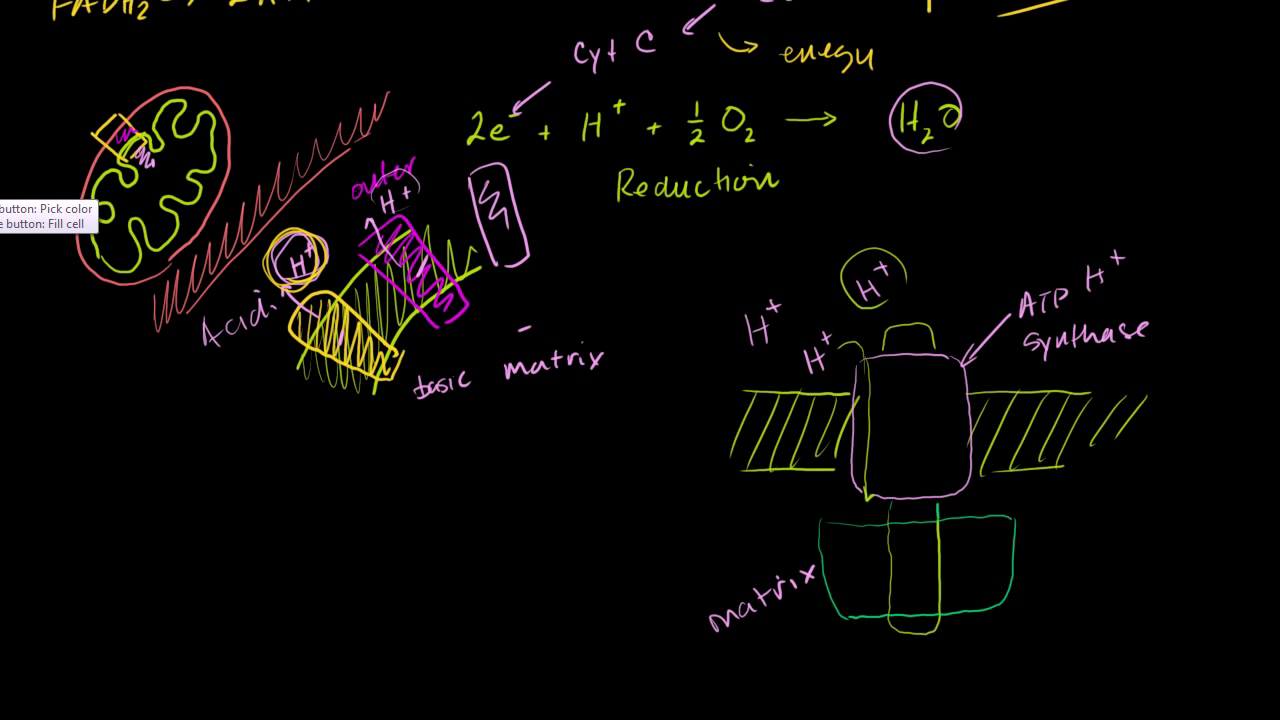 Cyt C
energy
2e⁻ + H⁺ + ½ O₂ → H₂O
Reduction
button: Pick color
e button: Fill cell
outer
H⁺
H⁺
Acidic
basic matrix
H⁺
H⁺
H⁺
ATP H⁺
synthase
matrix